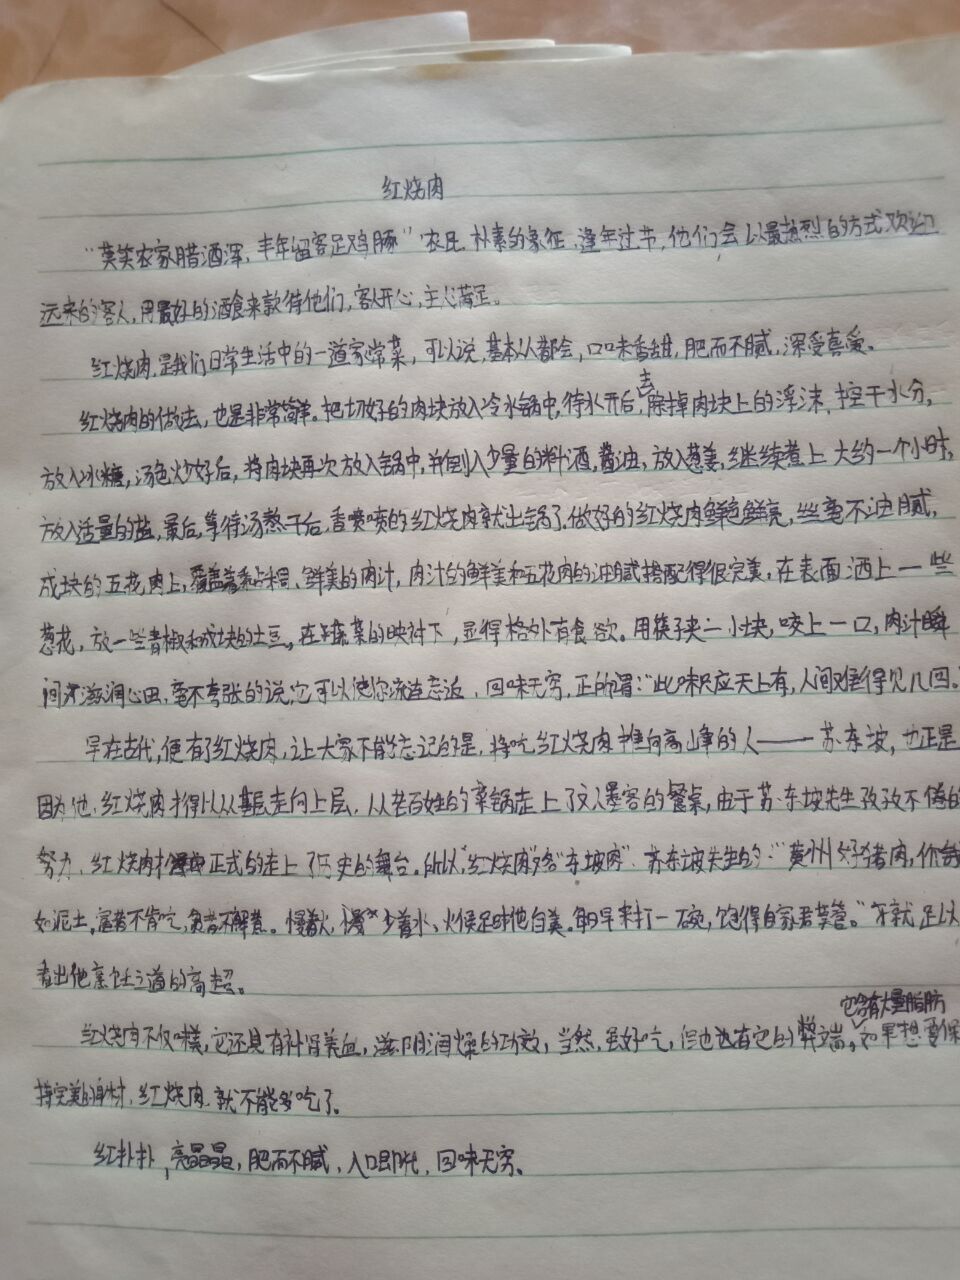 红烧肉
"莫笑农家腊酒浑，丰年留客足鸡豚"农民，朴素的象征，逢年过节，他们会以最热烈的方式欢迎
远来的客人，用最好的酒食来款待他们，客人开心，主人满足。
红烧肉，是我们日常生活中的一道家常菜，可以说，基本人人都会，口味香甜，肥而不腻，深受喜爱。
红烧肉的做法，也是非常简单。把切好的肉块放入冷水锅中，待水开后，去除掉肉块上的浮沫，控干水分，
放入冰糖，汤色炒好后，将肉块再次放入锅中，并倒入少量的料酒，酱油，放入葱姜，继续煮上大约一个小时，
放入适量的盐，最后，等待汤熬干后，香喷喷的红烧肉就出锅了，做好的红烧肉鲜色鲜亮，丝毫不油腻，
成块的五花肉上，覆盖着粘稠、鲜美的肉汁，肉汁的鲜美和五花肉的油腻搭配得很完美，在表面洒上一些
葱花，放一些青椒和成块的土豆。在蔬菜的映衬下，显得格外有食欲。用筷子夹一小块，咬上一口，肉汁瞬
间滋润心田，毫不夸张的说，它可以使你流连忘返，回味无穷，正所谓："此味只应天上有，人间难得见几回。"
早在古代，便有了红烧肉，让大家不能忘记的是，将吃红烧肉推向高峰的人——苏东坡，也正是
因为他，红烧肉才得以从基层走向上层，从老百姓的菜锅走上了文人墨客的餐桌，由于苏东坡先生孜孜不倦的
努力，红烧肉才正式的走上了历史的舞台。所以"红烧肉"又名"东坡肉"．苏东坡先生的："黄州好猪肉，价钱
如泥土，富者不肯吃，贫者不解煮。慢着火，少着水，火候足时他自美。每日早来打一碗，饱得自家君莫管。"就足以
看出他烹饪之道的高超。
红烧肉不仅味美，它还具有补肾养血，滋阴润燥的功效，当然，虽好吃，但也也有它的弊端，它含有大量脂肪 如果想要保
持完美的身材，红烧肉，就不能多吃了。
红扑扑，亮晶晶，肥而不腻，入口即化，回味无穷。